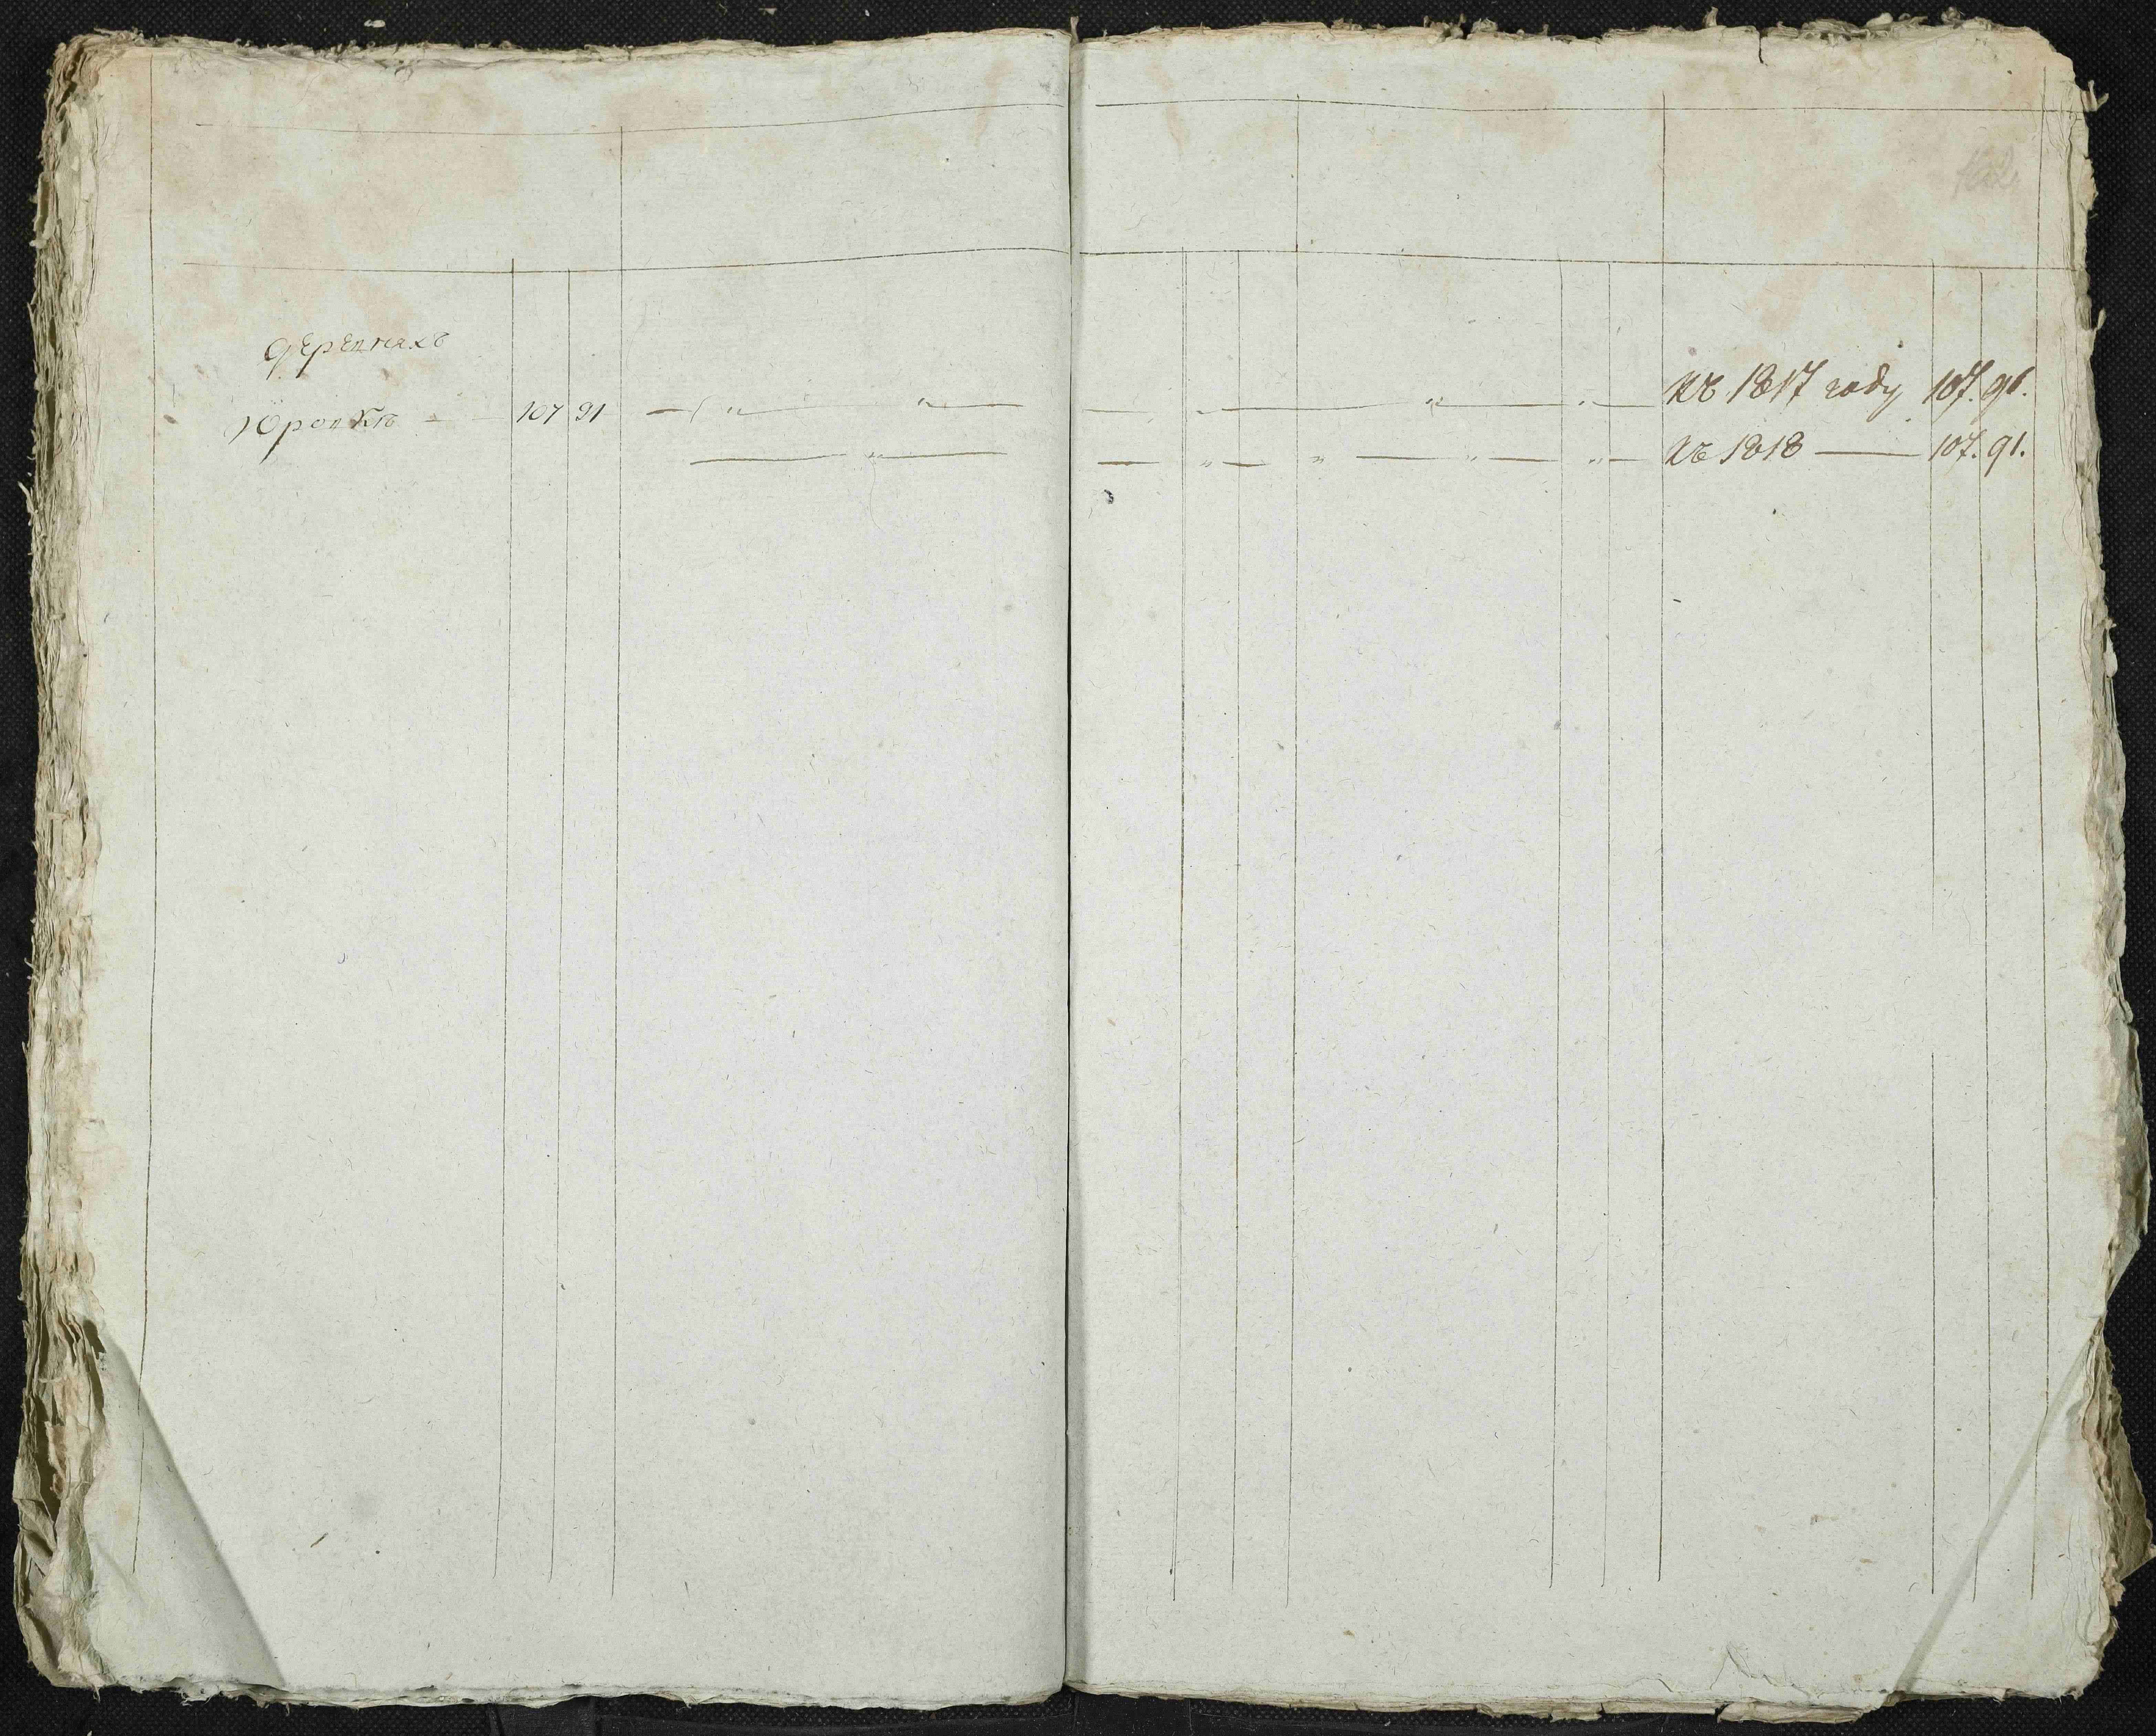 деревняхъ
Юровкѣ — — 107 91 — „ — „ — — „ — „ — „ — Къ 1817 году 107. 91.
— „ — — „ — „ — „ — „ — Къ 1818 — 107. 91.